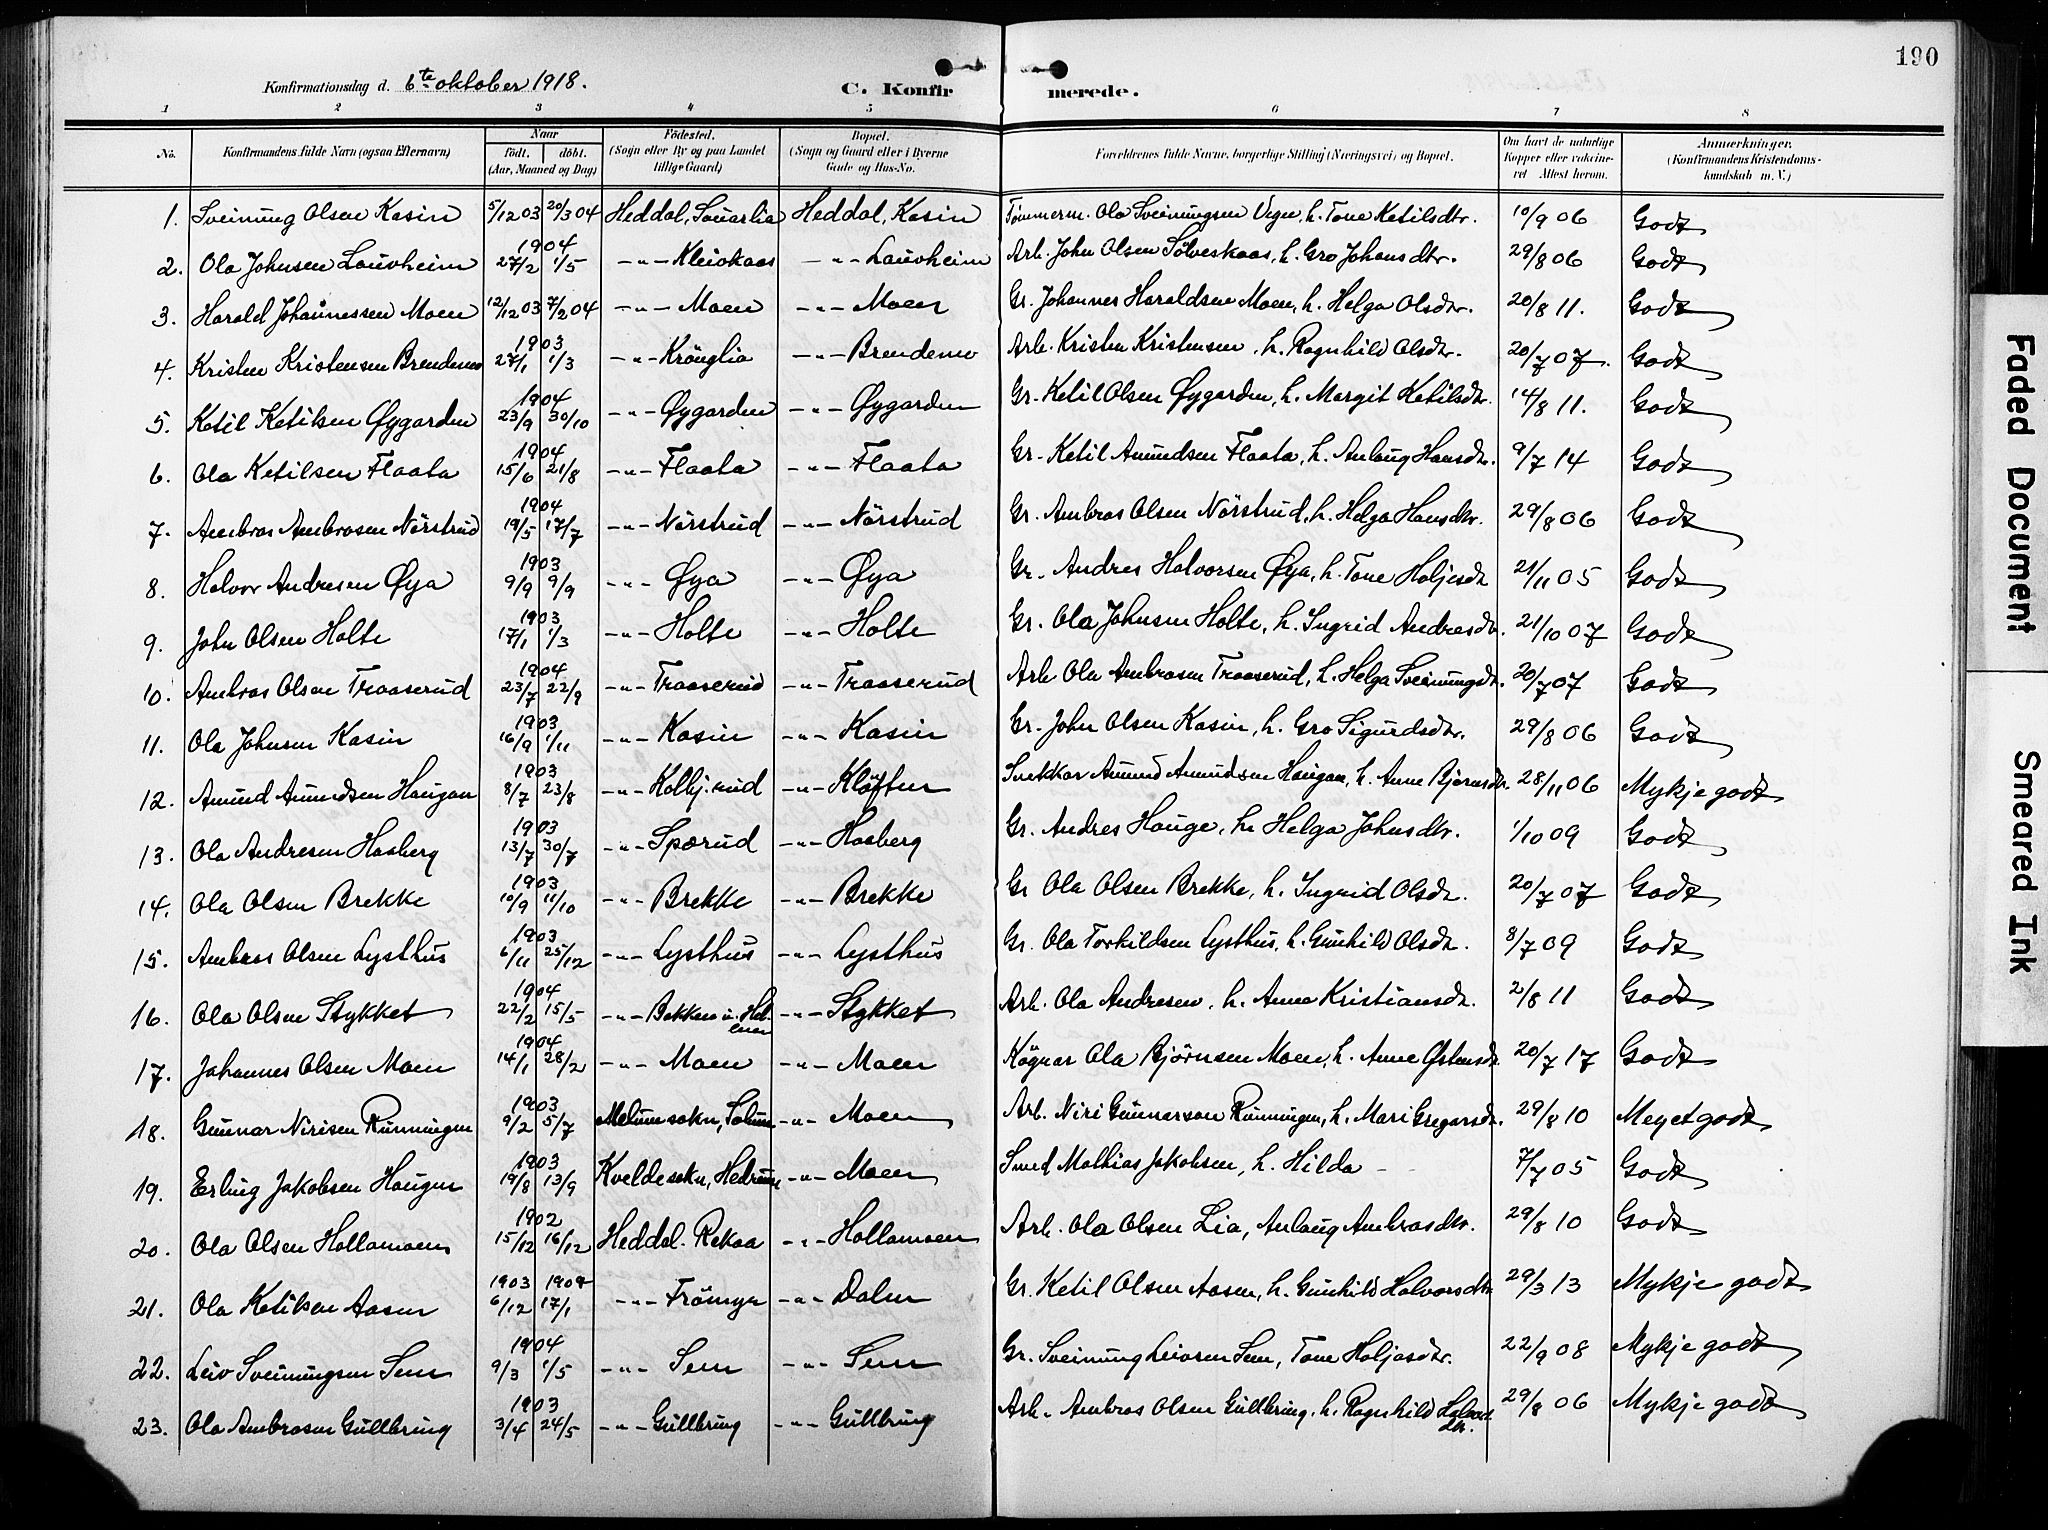 190
Konfirmationsdag d. 6te oktober 1918. C. Konfirmerede.
1 2 3 4 5 6 7 8
No. Konfirmandens fulde Navn (ogsaa Efternavn) Naar födt. döbt. (Aar, Maaned og Dag) Födested. (Sogn eller By og paa Landet tillige Gaard) Bopæl. (Sogn og Gaard eller i Byerne Gade og Hus-No. Forældrenes fulde Navne, borgerlige Stilling (Næringsvei) og Bopæl. Om havt de naturlige Kopper eller vakcineret Attest herom. Anmærkninger. (Konfirmandens Kristendomskundskab m. V.)
1. Sveinung Olsen Kasin 5/12 03 20/3 04 Heddal, Heddal, Kasin Tömmerm. Ola Sveinungsen Vegu, h. Tone Ketilsdtr. 10/9 06 Godt
2. Ola Johnsen Lauvheim 1904 27/2 1/5 -"- Kleivkaas -"- Lauvheim Arb. John Olsen Sölveskaas, h. Gro Johansdtr. 29/8 06 Godt
3. Harald Johannessen Moen 12/12 03 7/2 04 -"- Moen -"- Moen Gr. Johannes Haraldsen Moen, h. Helga Olsdtr. 20/8 11. Godt
4. Kristen Kristensen Brendemo 1903 27/1 1/3 -"- Krönglia -"- Brendemo Arb. Kristen Kristensen, h. Ragnhild Olsdtr. 20/7 07. Godt
5. Ketil Ketilsen Øygarden 1904 23/9 30/10 -"- Øygarden -"- Øygarden Gr. Ketil Olsen Øygarden, h. Margit Ketilsdtr. 14/8 11. Godt
6. Ola Ketilsen Flaata 1904 15/6 21/8 -"- Flaata -"- Flaata Gr. Ketil Amundsen Flaata, h. Anlaug Hansdtr. 9/7 14 Godt
7. Ambros Ambrosen Nörstrud 1904 19/5 17/7 -"- Nörstrud -"- Nörstrud Gr. Ambros Olsen Nörstrud, h. Helga Hansdtr. 29/8 06 Godt
8. Halvor Andresen Øya 1903 9/9 9/9 -"- Øya -"- Øya Gr. Andres Halvorsen Øya, h. Tone Holjesdtr. 21/11 05 Godt
9. John Olsen Holte 1903 17/1 1/3 -"- Holte -"- Holte Gr. Ola Johnsen Holte, h. Ingrid Andresdtr. 21/10 07 Godt
10. Ambros Olsen Traaserud 1904 23/7 22/9 -"- Traaserud -"- Traaserud Arb Ola Ambrosen Traaserud, h. Helga Sveinungsdtr. 20/7 07 Godt
11. Ola Johnsen Kasin 1903 16/9 1/11 -"- Kasin -"- Kasin Gr. John Olsen Kasin, h. Gro Sigurdsdtr. 29/8 06 Godt
12. Amund Amundsen Haugan 1903 8/7 23/8 -"- Kolbj.rud -"- Klöften Snekkar Amund Amundsen Haugan, h. Anne Bjørnsdtr. 28/11 06 Mykje godt
13. Ola Andresen Hasberg 1903 13/7 30/7 -"- Spærud -"- Hasberg Gr. Andres Hauge, h. Helga Johnsdtr. 1/10 09 Godt
14. Ola Olsen Brekke 1903 10/9 11/10 -"- Brekke -"- Brekke Gr Ola Olsen Brekke, h. Ingrid Olsdtr. 20/7 07 Godt
15. Ambros Olsen Lysthus 1903 6/11 25/12 -"- Lysthus -"- Lysthus Gr. Ola Torkildsen Lysthus, h. Gunhild Olsdtr. 8/7 09 Godt
16. Ola Olsen Stykket 1904 22/2 15/5 -"- Bekken -"- Stykket Arb. Ola Andresen, h. Anna Kristiansdtr. 2/8 11 Godt
17. Johannes Olsen Moen 1904 14/1 28/2 -"- Moen -"- Moen Ola Bjørnsen Moen, h. Anne Østensdtr. 20/7 17 Godt
18. Gunnar Nirisen Runningen 1903 9/2 5/7 Melumsokn, Solum -"- Moen Arb. Niri Gunnarson Runningen, h. Mari Gregarsdtr. 29/8 10 Meget godt
19. Erling Jakobsen Haugen 1903 19/8 13/9 Kveldesokn, Hedrum -"- Moen Smed Mathias Jakobsen, h. Hilda - 7/7 05 Godt
20. Ola Olsen Hollamoen 1902 15/12 16/12 Heddal. Rekaa -"- Hollamoen Arb. Ola Olsen Lia, Anlaug Ambrosdtr. 29/8 10 Godt
21. Ola Ketilsen Aasen 1903 1904 6/12 17/1 -"- Frömyr -"- Dalen Gr. Ketil Olsen Aasen, h. Gunhild Halvorsdtr. 29/3 13 Mykje godt
22. Leiv Sveinungsen Sem 1904 9/3 1/5 -"- Sem -"- Sem Gr. Sveinung Leivsen Sem, Tone Holjesdtr. 22/9 08 Mykje godt
23. Ola Ambrosen Gullbring 1903 3/4 24/5 -"- Gullbring -"- Gullbring Arb. Ambros Olsen Gullbring, h. Ragnhild 29/8 06 Mykje godt
Faded Document
Smeared Ink